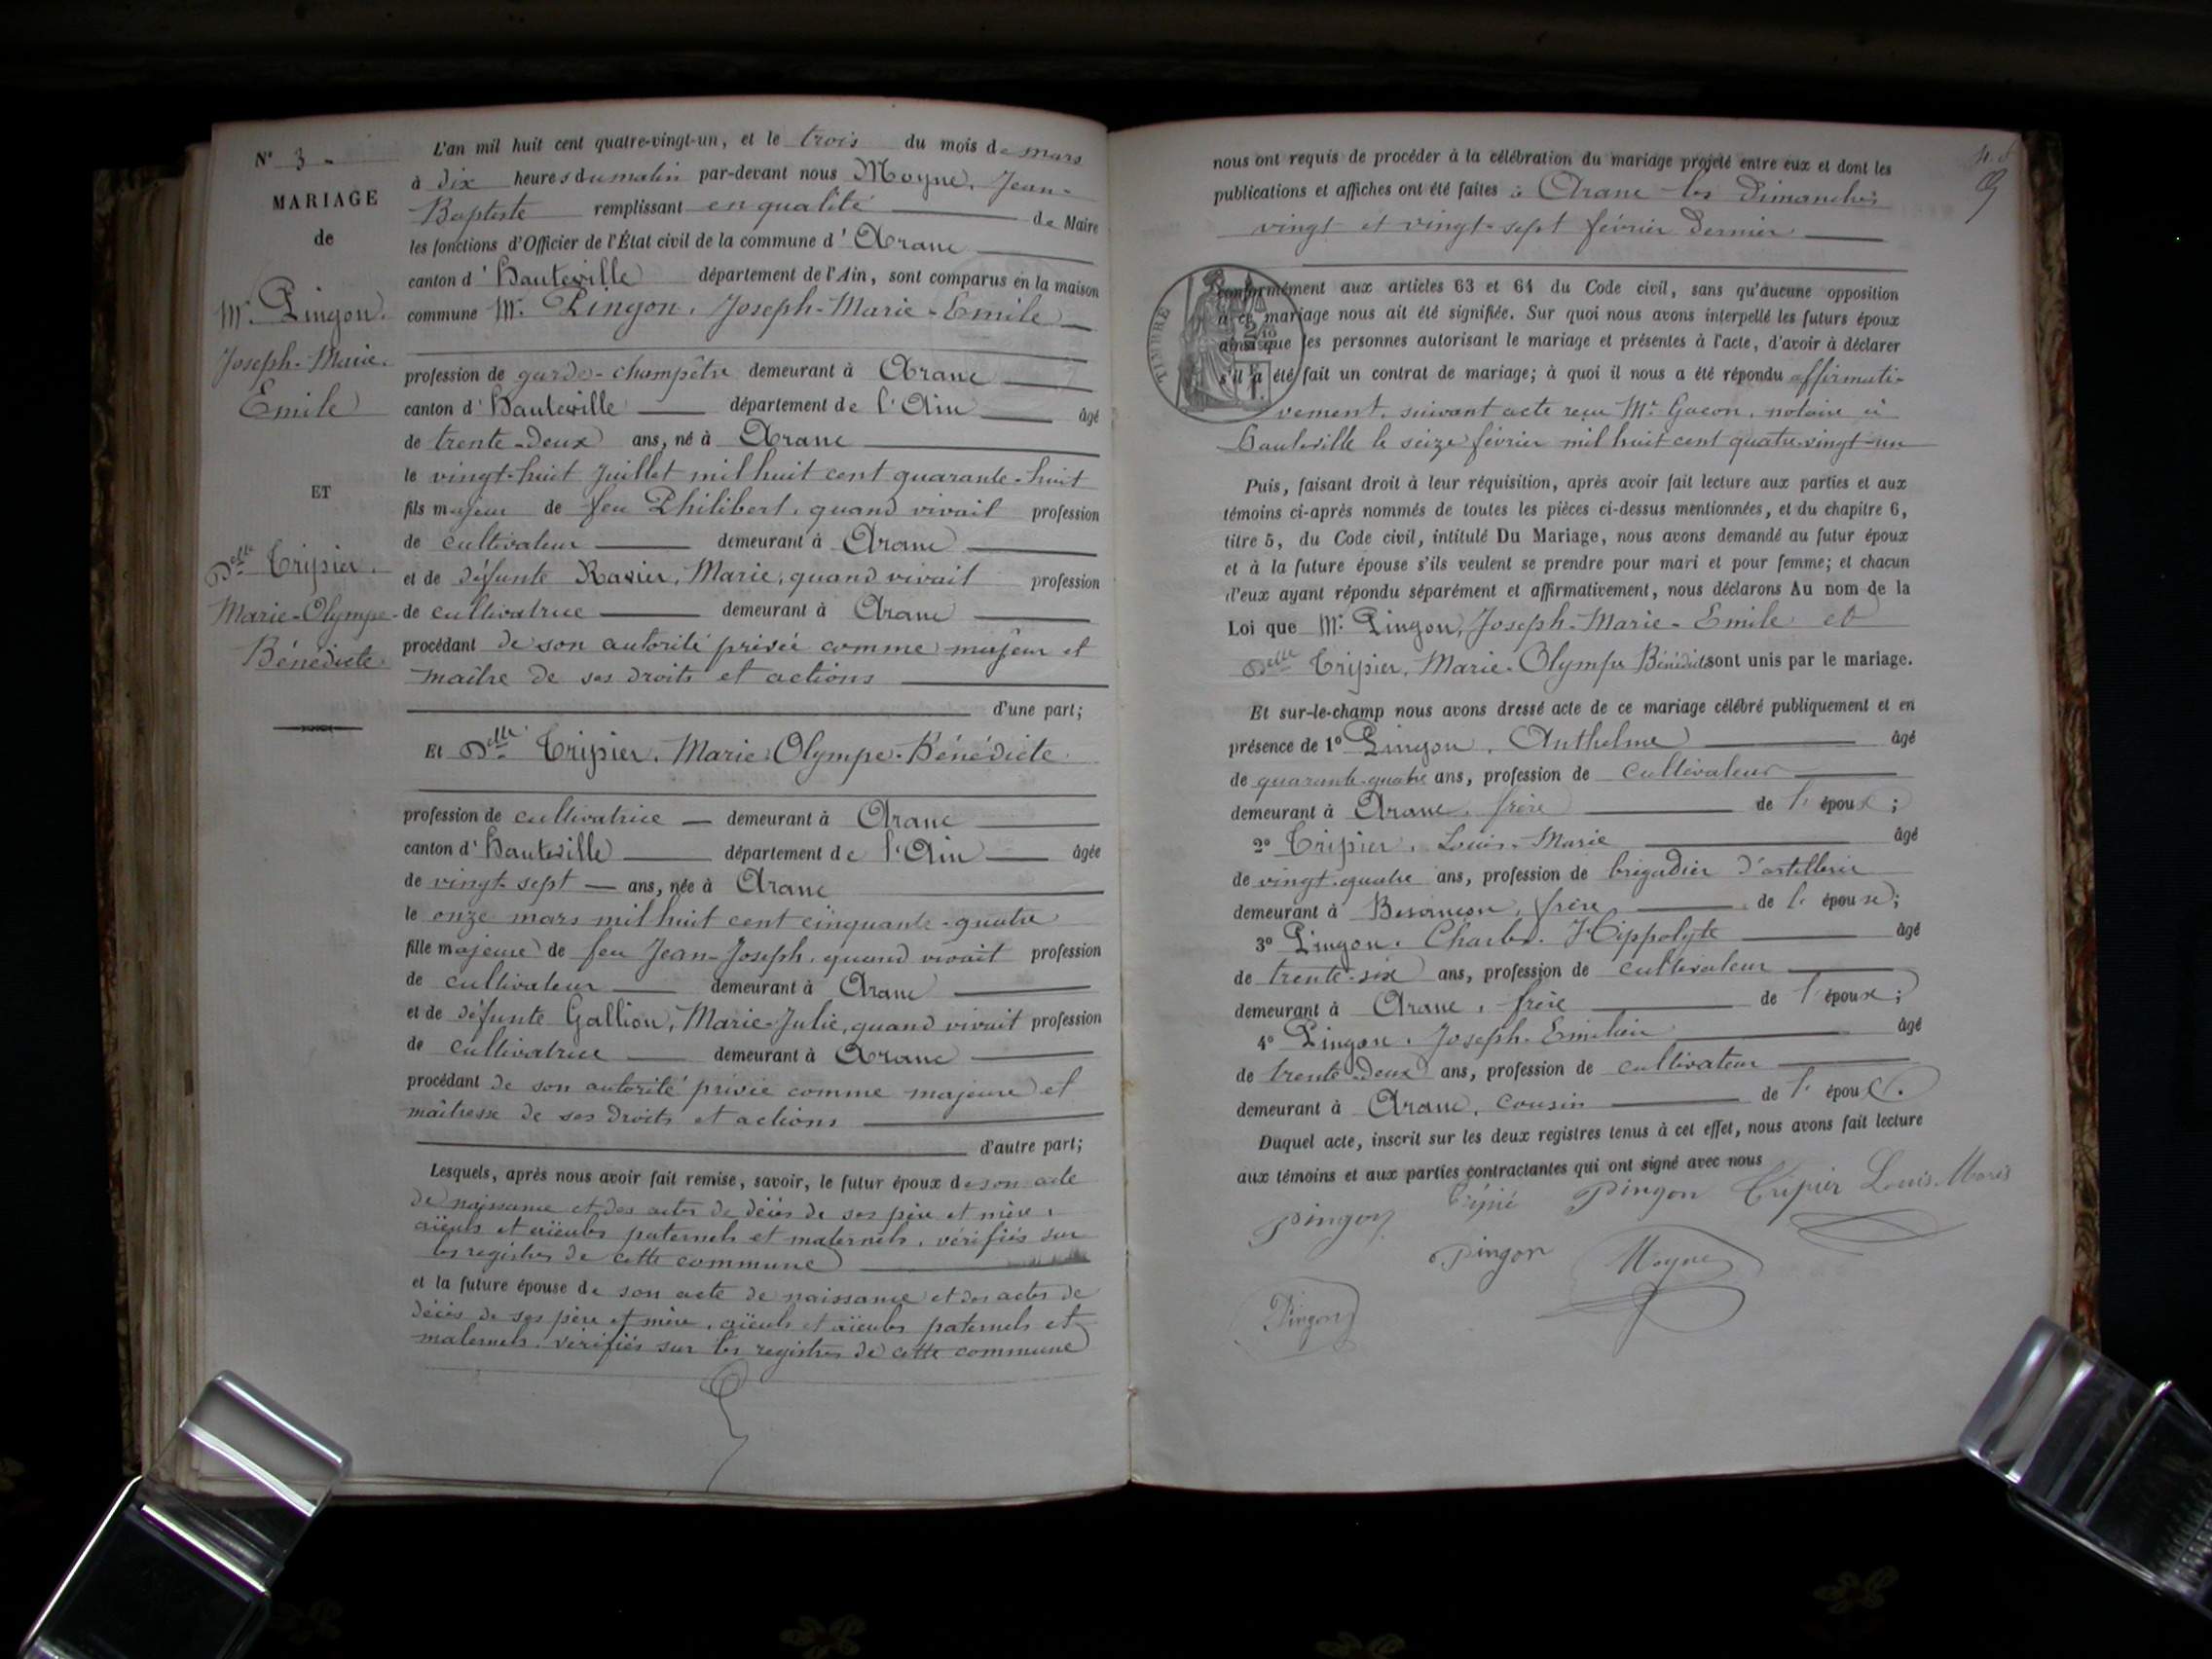 N° 3
MARIAGE
de
Mr. Pingon.
Joseph-Marie.
Emile
ET
Delle Tripier.
Marie-Olympe-
Bénédicte.
L'an mil huit cent quatre-vingt-un, et le trois du mois de mars
à dix heures du matin par-devant nous Moyne, Jean-
Baptiste remplissant en qualité de Maire
les fonctions d'Officier de l'État civil de la commune d'Aranc
canton d'Hauteville département de l'Ain, sont comparus en la maison
commune Mr. Pingon, Joseph-Marie-Emile
profession de garde-champêtre demeurant à Aranc
canton d'Hauteville département de l'Ain âgé
de trente-deux ans, né à Aranc
le vingt-huit Juillet mil huit cent quarante-huit
fils majeur de feu Philibert, quand vivait profession
de cultivateur demeurant à Aranc
et de défunte Ravier, Marie, quand vivait profession
de cultivatrice demeurant à Aranc
procédant de son autorité privée comme majeur et
maître de ses droits et actions
d'une part;
Et Delle Tripier, Marie-Olympe-Bénédicte
profession de cultivatrice demeurant à Aranc
canton d'Hauteville département de l'Ain âgée
de vingt-sept ans, née à Aranc
le onze mars mil huit cent cinquante-quatre
fille majeure de feu Jean-Joseph, quand vivait profession
de cultivateur demeurant à Aranc
et de défunte Gallion, Marie-Julie, quand vivait profession
de cultivatrice demeurant à Aranc
procédant de son autorité privée comme majeure et
maîtresse de ses droits et actions
d'autre part;
Lesquels, après nous avoir fait remise, savoir, le futur époux de son acte
de naissance et des actes de décès de ses père et mère,
aïeuls et aïeules paternels et maternels, vérifiés sur
les registres de cette commune
et la future épouse de son acte de naissance et des actes de
décès de ses père et mère, aïeuls et aïeules paternels et
maternels, vérifiés sur les registres de cette commune
nous ont requis de procéder à la célébration du mariage projeté entre eux et dont les
publications et affiches ont été faites à Aranc les Dimanches
vingt et vingt-sept février dernier
TIMBRE
conformément aux articles 63 et 64 du Code civil, sans qu'aucune opposition
à ce mariage nous ait été signifiée. Sur quoi nous avons interpellé les futurs époux
ainsi que les personnes autorisant le mariage et présentes à l'acte, d'avoir à déclarer
s'il a été fait un contrat de mariage; à quoi il nous a été répondu affirmati-
vement, suivant acte reçu Mr. Gacon, notaire à
Hauteville le seize février mil huit cent quatre-vingt-un
Puis, faisant droit à leur réquisition, après avoir fait lecture aux parties et aux
témoins ci-après nommés de toutes les pièces ci-dessus mentionnées, et du chapitre 6,
titre 5, du Code civil, intitulé Du Mariage, nous avons demandé au futur époux
et à la future épouse s'ils veulent se prendre pour mari et pour femme; et chacun
d'eux ayant répondu séparément et affirmativement, nous déclarons Au nom de la
Loi que Mr. Pingon, Joseph-Marie-Emile et
Delle Tripier, Marie-Olympe Bénédicte sont unis par le mariage.
Et sur-le-champ nous avons dressé acte de ce mariage célébré publiquement et en
présence de 1° Pingon, Anthelme âgé
de quarante-quatre ans, profession de cultivateur
demeurant à Aranc, frère de l'époux;
2° Tripier, Louis-Marie âgé
de vingt-quatre ans, profession de brigadier d'artillerie
demeurant à Besançon, frère de l'épouse;
3° Pingon, Charles-Hippolyte âgé
de trente-six ans, profession de cultivateur
demeurant à Aranc, frère de l'époux;
4° Pingon, Joseph-Emilien âgé
de trente-deux ans, profession de cultivateur
demeurant à Aranc, cousin de l'époux.
Duquel acte, inscrit sur les deux registres tenus à cet effet, nous avons fait lecture
aux témoins et aux parties contractantes qui ont signé avec nous
Pingon Pingon Tripier Louis Marie
Pingon Moyne
Pingon